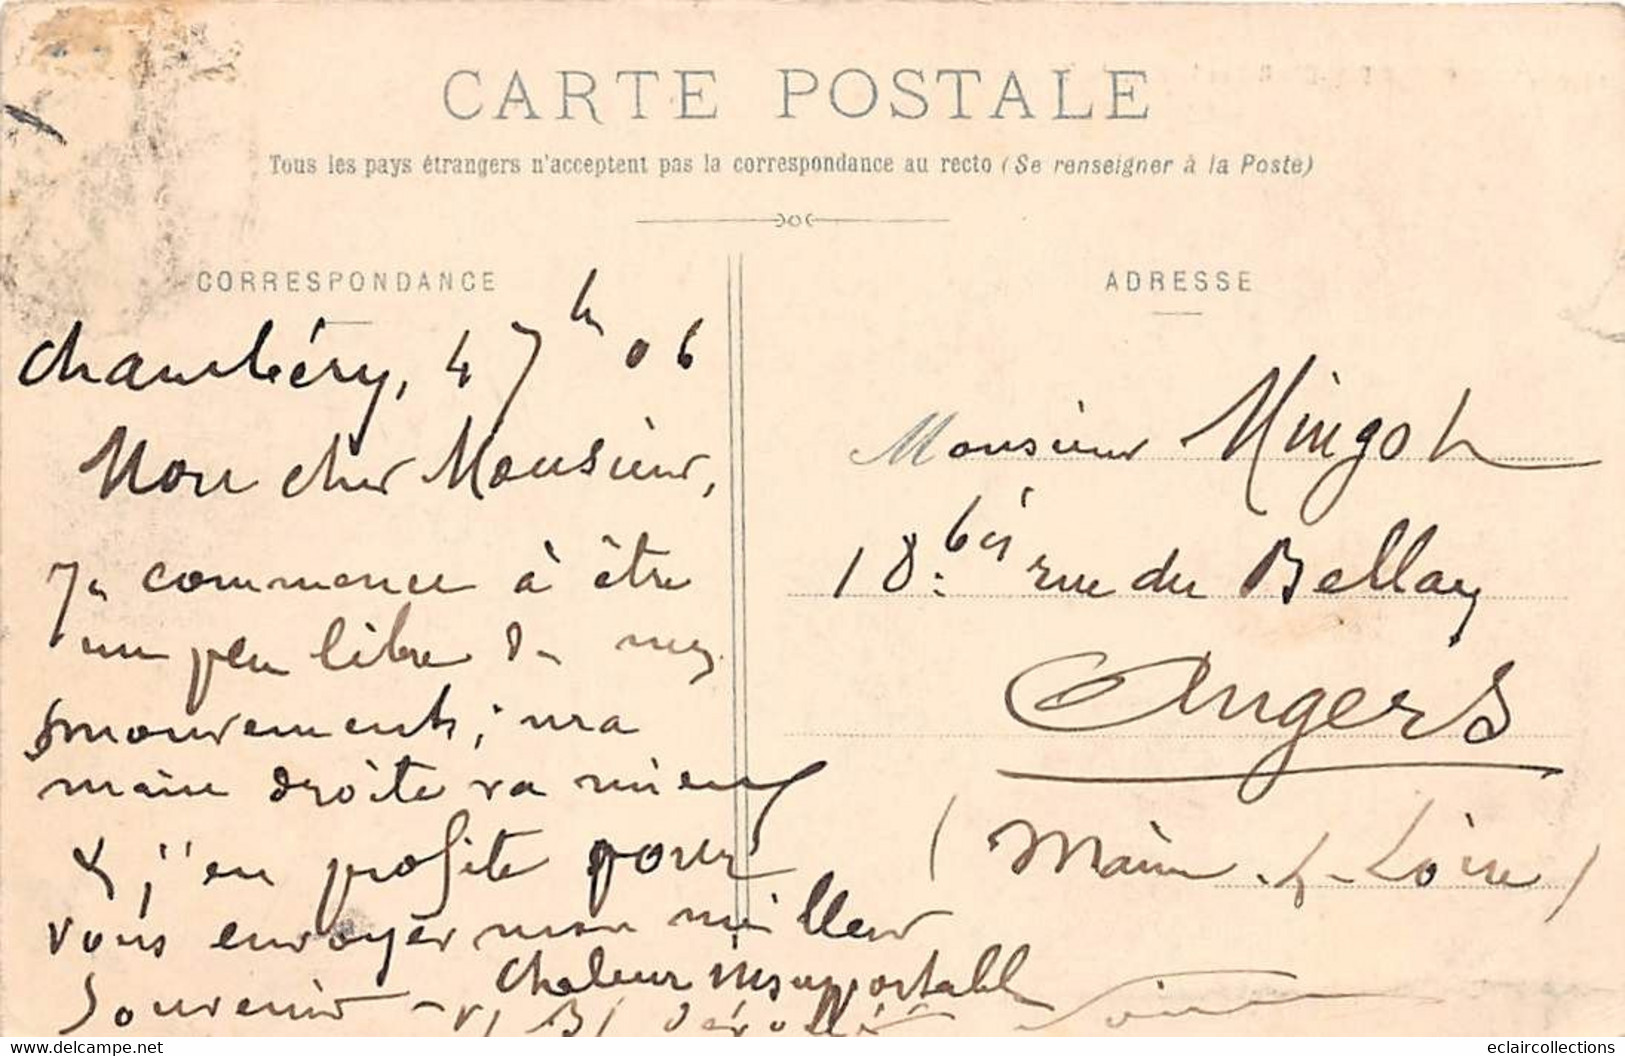 CARTE POSTALE
Tous les pays étrangers n'acceptent pas la correspondance au recto (Se renseigner à la Poste)
CORRESPONDANCE
ADRESSE
Chambéry, 4 7h 06
Mon cher Monsieur,
Je commence à être
un peu libre de mes
mouvements ; ma
main droite va mieux
& j'en profite pour
vous envoyer mon meilleur
souvenir -
Chaleur insupportable
Monsieur Mingot
18 bis rue du Bellay
Angers
(Maine-&-Loire)
delcampe.net
eclaircollections